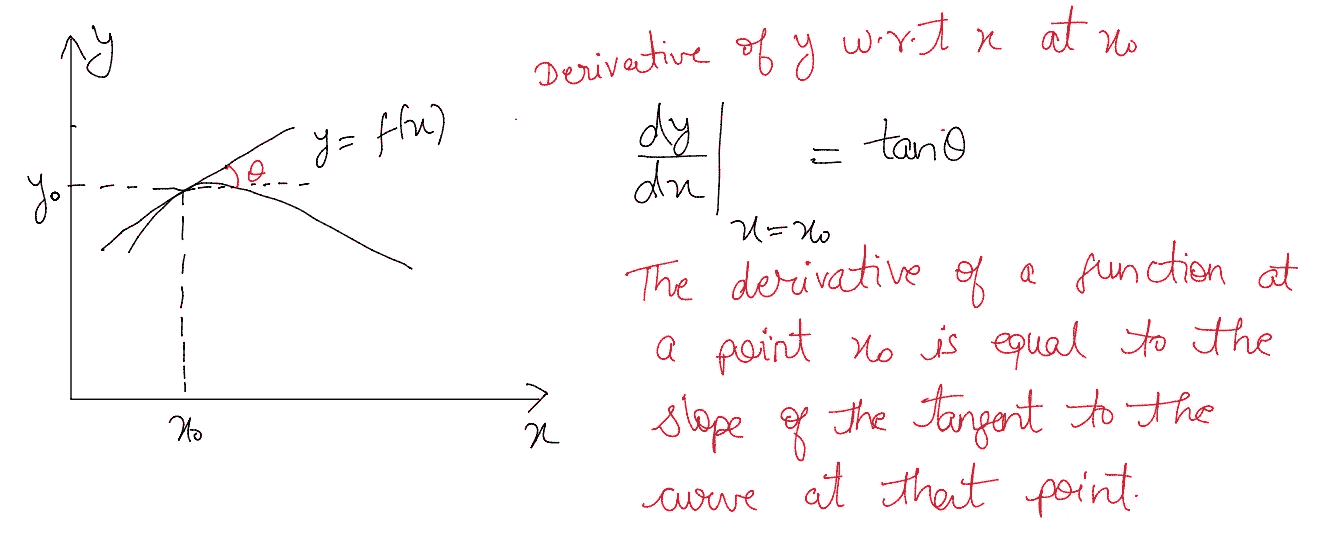 y
y = f(x)
θ
y₀
x₀
x
Derivative of y w.r.t x at x₀
dy/dx | x=x₀ = tanθ
The derivative of a function at
a point x₀ is equal to the
slope of the tangent to the
curve at that point.